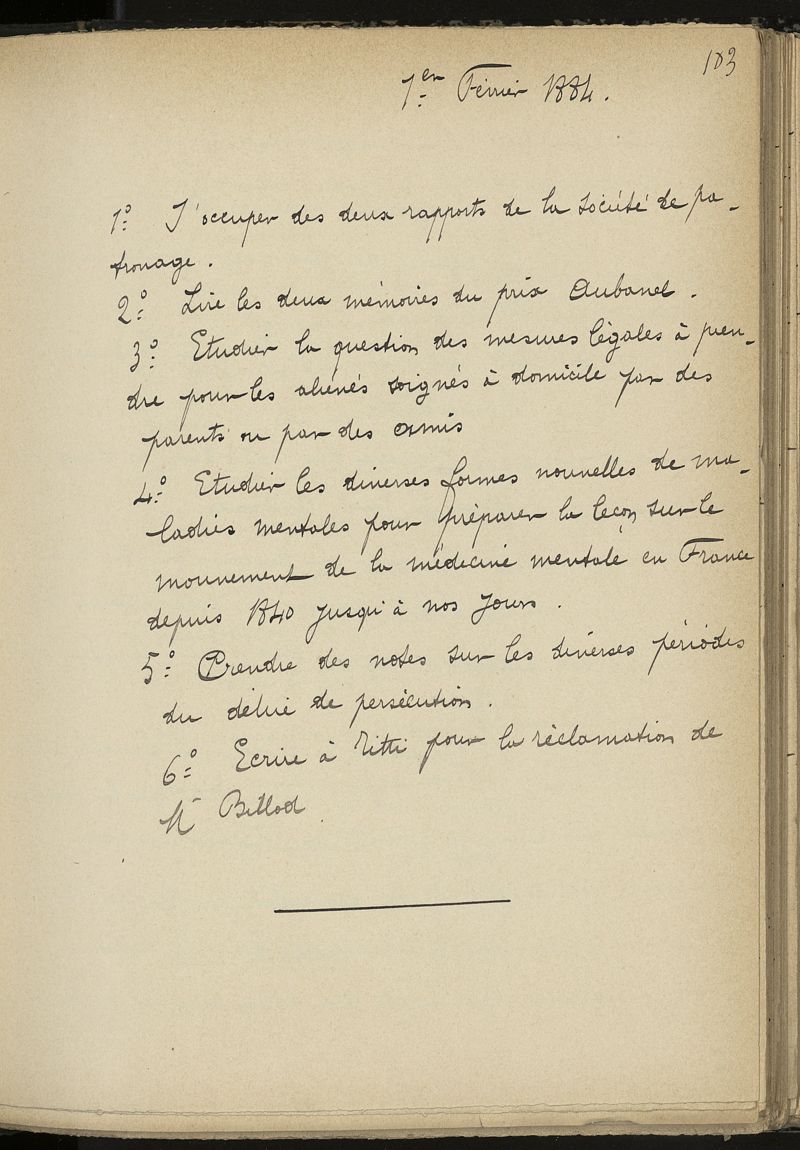 183
1er Février 1884.
1o S'occuper des deux rapports de la société de pa-
tronage.
2o Lire les deux mémoires du prix Aubanel.
3o Etudier la question des mesures légales à pren-
dre pour les aliénés soignés à domicile par des
parents ou par des amis
4o Etudier les diverses formes nouvelles de ma-
ladies mentales pour préparer la leçon sur le
mouvement de la médecine mentale en France
depuis 1840 jusqu'à nos jours.
5o Prendre des notes sur les diverses périodes
du délire de persécution.
6o Ecrire à Ritti pour la réclamation de
Mr Billod